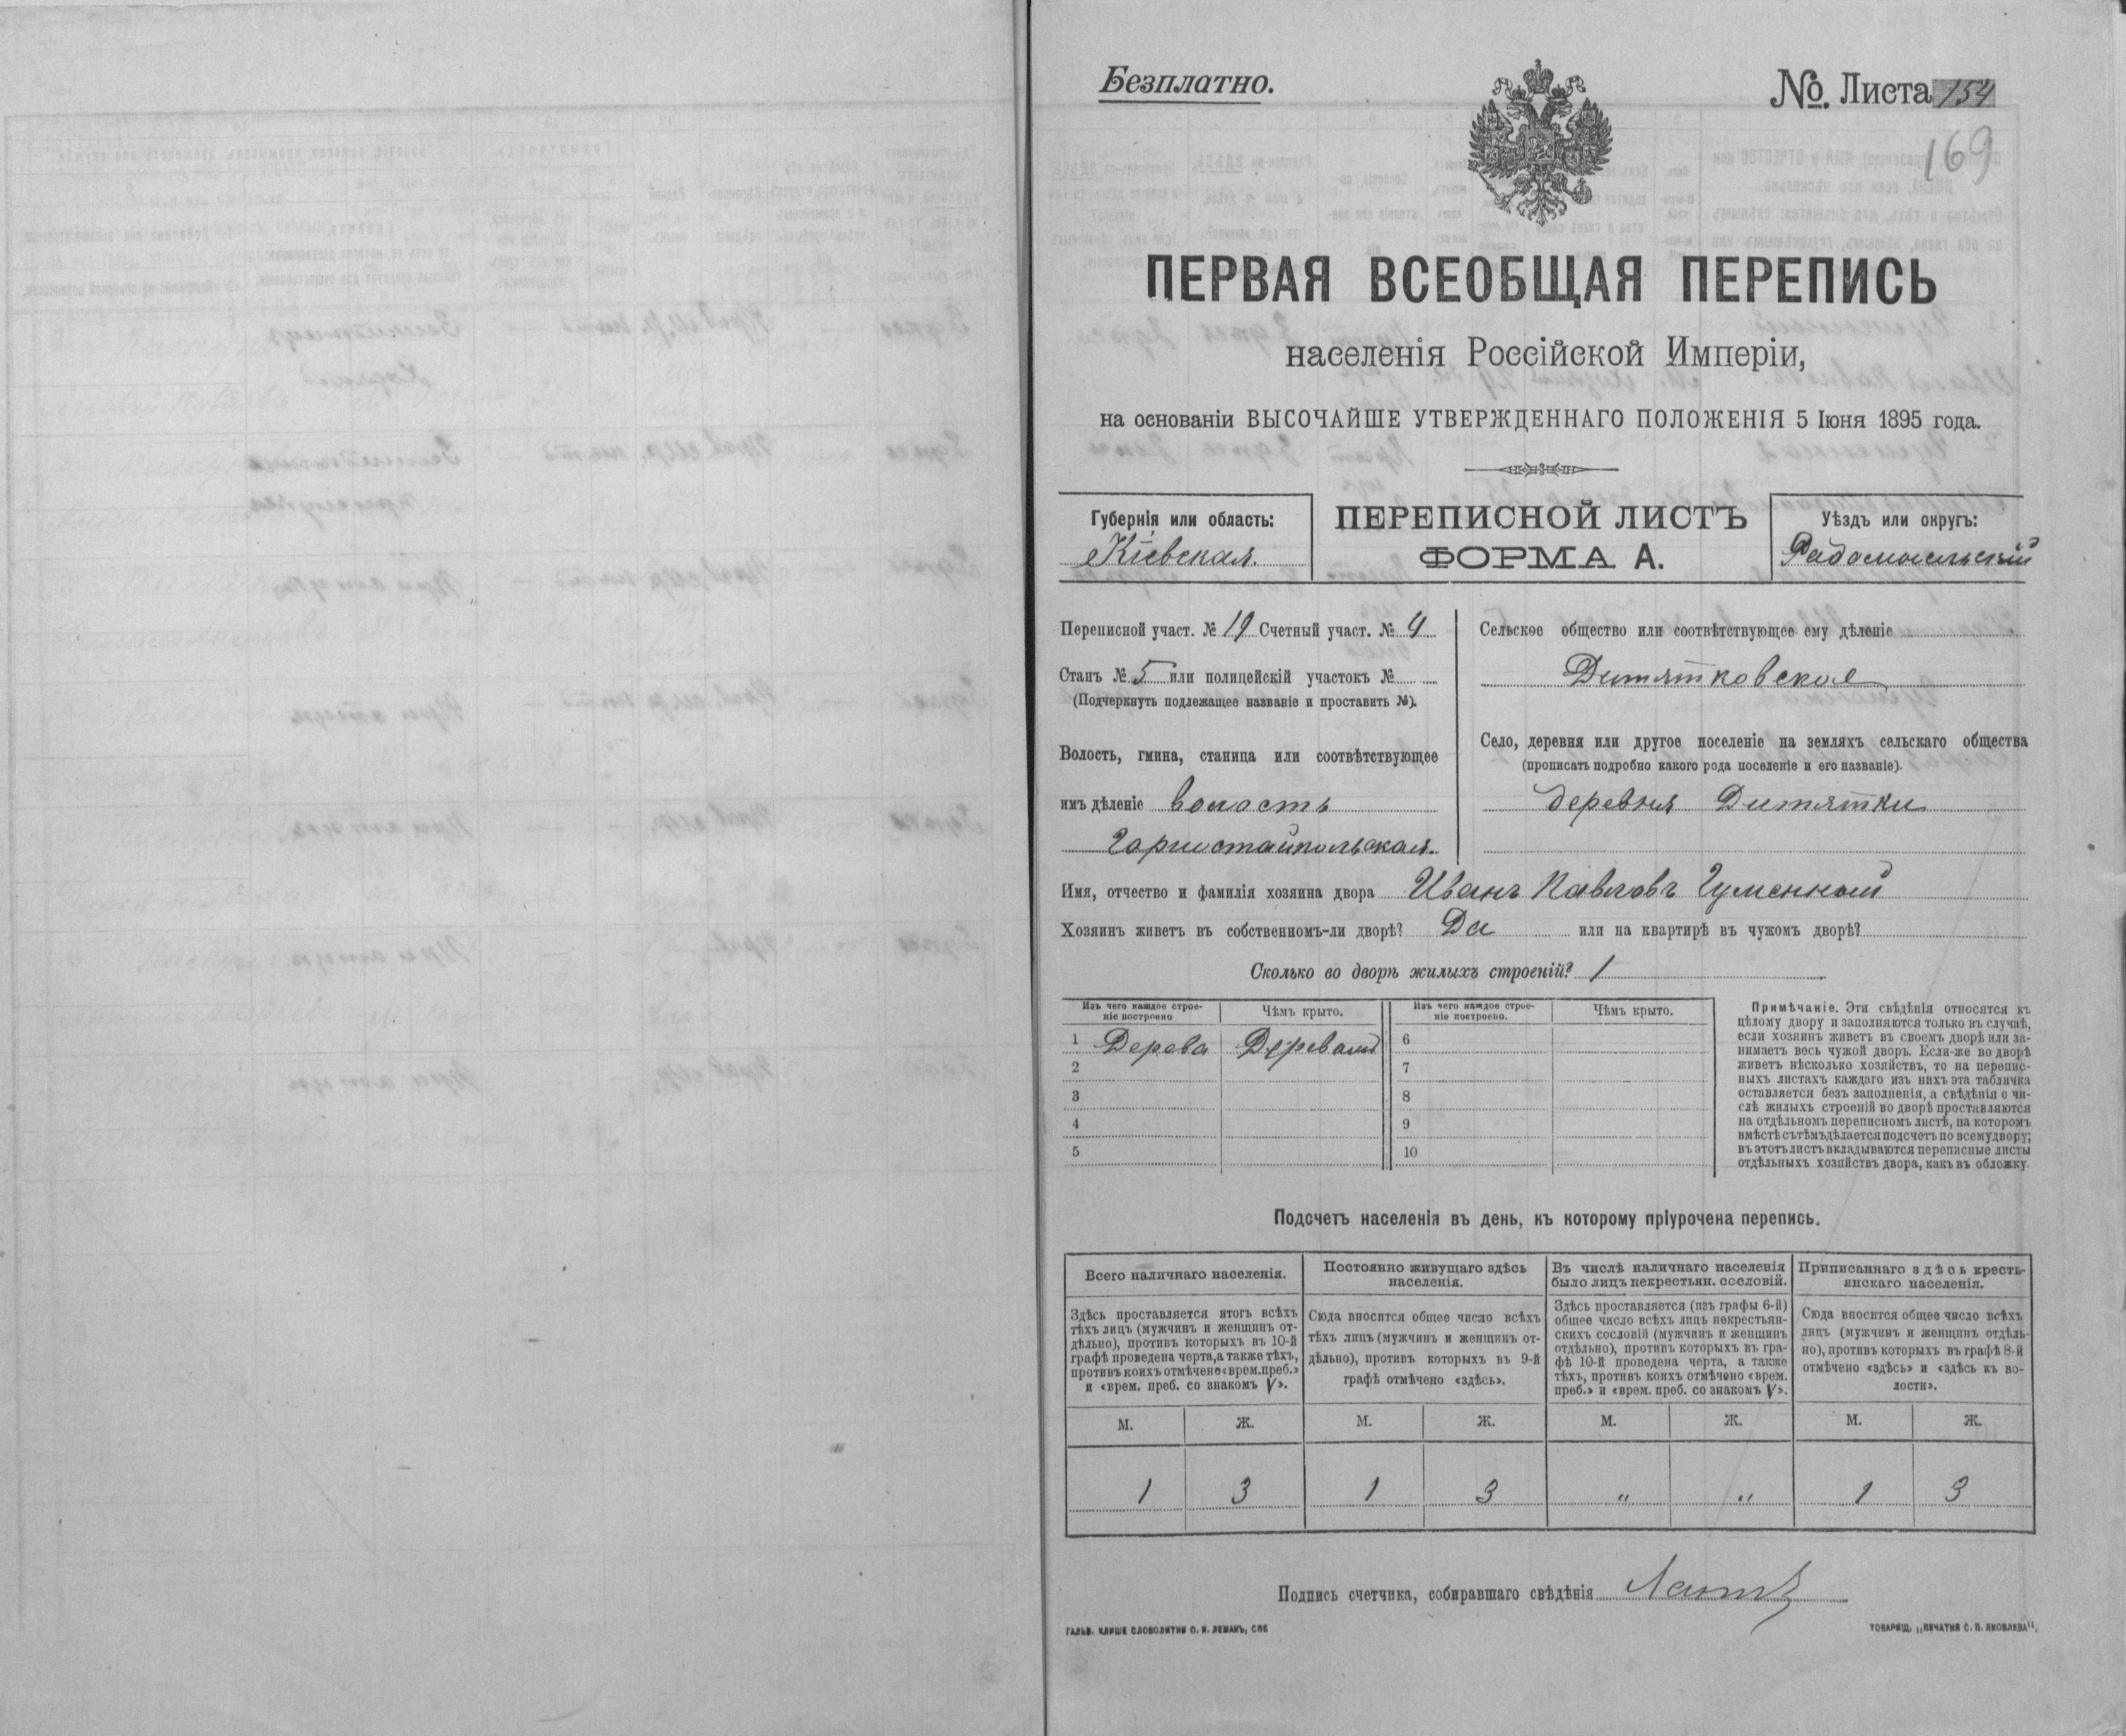 Безплатно.
№. Листа 154
169
ПЕРВАЯ ВСЕОБЩАЯ ПЕРЕПИСЬ
населенія Россійской Имперіи,
на основаніи ВЫСОЧАЙШЕ УТВЕРЖДЕННАГО ПОЛОЖЕНІЯ 5 Іюня 1895 года.
Губернія или область:
Кіевская.
ПЕРЕПИСНОЙ ЛИСТЪ
ФОРМА А.
Уѣздъ или округъ:
Радомысльскій
Переписной участ. № 19 Счетный участ. № 4
Станъ № 5 или полицейскій участокъ №
(Подчеркнуть подлежащее названіе и проставить №).
Волость, гмина, станица или соотвѣтствующее
имъ дѣленіе волость
Горностайпольская.
Сельское общество или соотвѣтствующее ему дѣленіе
Дитятковское
Село, деревня или другое поселеніе на земляхъ сельскаго общества
(прописать подробно какого рода поселеніе и его названіе).
деревня Дитятки
Имя, отчество и фамилія хозяина двора Иванъ Павловъ Гуменный
Хозяинъ живетъ въ собственномъ-ли дворѣ? Да или на квартирѣ въ чужомъ дворѣ?
Сколько во дворѣ жилыхъ строеній? 1
Изъ чего каждое строе-
ніе построено
Чѣмъ крыто.
Изъ чего каждое строе-
ніе построено.
Чѣмъ крыто.
1 Дерева Деревомъ 6
2 7
3 8
4 9
5 10
Примѣчаніе. Эти свѣдѣнія относятся къ
цѣлому двору и заполняются только въ случаѣ,
если хозяинъ живетъ въ своемъ дворѣ или за-
нимаетъ весь чужой дворъ. Если-же во дворѣ
живетъ нѣсколько хозяйствъ, то на перепис-
ныхъ листахъ каждаго изъ нихъ эта табличка
оставляется безъ заполненія, а свѣдѣнія о чи-
слѣ жилыхъ строеній во дворѣ проставляются
на отдѣльномъ переписномъ листѣ, на которомъ
вмѣстѣ съ тѣмъ дѣлается подсчетъ по всему двору;
въ этотъ листъ вкладываются переписные листы
отдѣльныхъ хозяйствъ двора, какъ въ обложку.
Подсчетъ населенія въ день, къ которому пріурочена перепись.
Всего наличнаго населенія.
Здѣсь проставляется итогъ всѣхъ
тѣхъ лицъ (мужчинъ и женщинъ от-
дѣльно), противъ которыхъ въ 10-й
графѣ проведена черта, а также тѣхъ,
противъ коихъ отмѣчено «врем. преб.»
и «врем. преб. со знакомъ V».
Постоянно живущаго здѣсь
населенія.
Сюда вносится общее число всѣхъ
тѣхъ лицъ (мужчинъ и женщинъ от-
дѣльно), противъ которыхъ въ 9-й
графѣ отмѣчено «здѣсь».
Въ числѣ наличнаго населенія
было лицъ некрестьян. сословій.
Здѣсь проставляется (изъ графы 6-й)
общее число всѣхъ лицъ некрестьян-
скихъ сословій (мужчинъ и женщинъ
отдѣльно), противъ которыхъ въ гра-
фѣ 10-й проведена черта, а также
тѣхъ, противъ коихъ отмѣчено «врем.
преб.» и «врем. преб. со знакомъ V».
Приписаннаго здѣсь кресть-
янскаго населенія.
Сюда вносится общее число всѣхъ
лицъ (мужчинъ и женщинъ отдѣль-
но), противъ которыхъ въ графѣ 8-й
отмѣчено «здѣсь» и «здѣсь къ во-
лости».
М. Ж. М. Ж. М. Ж. М. Ж.
1 3 1 3 " " 1 3
Подпись счетчика, собиравшаго свѣдѣнія
ГАЛЬВ. КЛИШЕ СЛОВОЛИТНИ О. И. ЛЕМАНЪ, СПБ
ТОВАРИЩ. „ПЕЧАТНЯ С. П. ЯКОВЛЕВА".